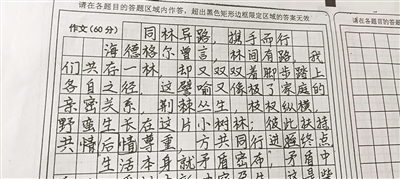 请在各题目的答题区域内作答，超出黑色矩形边框限定区域的答案无效
请在各题目的答题
作文(60分)
同林异路，携手而行
海德格尔曾言，林间有路，我
们共存一林，却又双双着脚步踏上
各自之径，这譬喻又像极了家庭的
亲密关系，荆棘丛生，枝杈纵横，
野蛮生长在这片小树林；彼此扶持
共情后情尊重，方共同行进臻终点
生活本身就矛盾密布，矛盾中